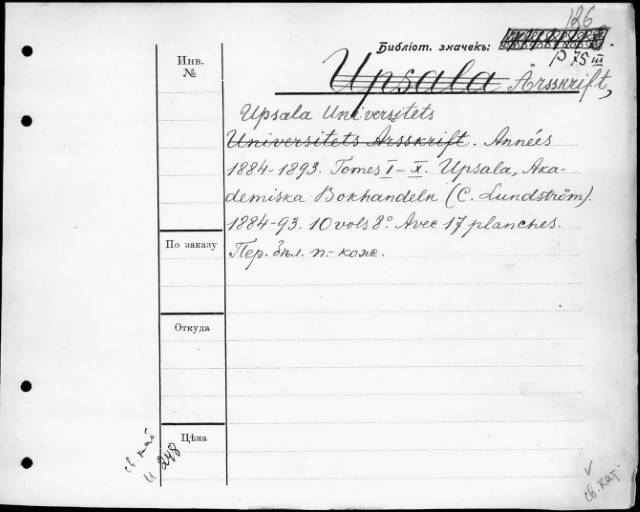 126
Библіот. значекъ:
β 75 III
Инв.
№
Upsala Årsskrift,
Upsala Universitets
Universitets Årsskrift. Années
1884-1893. Tomes I-X. Upsala, Aka-
demiska Bokhandeln (C. Lundström).
1884-93. 10 vols 8° Avec 17 planches.
По заказу
Пер. бѣл. п.-коже.
Откуда
Цѣна
св кат
и 248
св. кат.